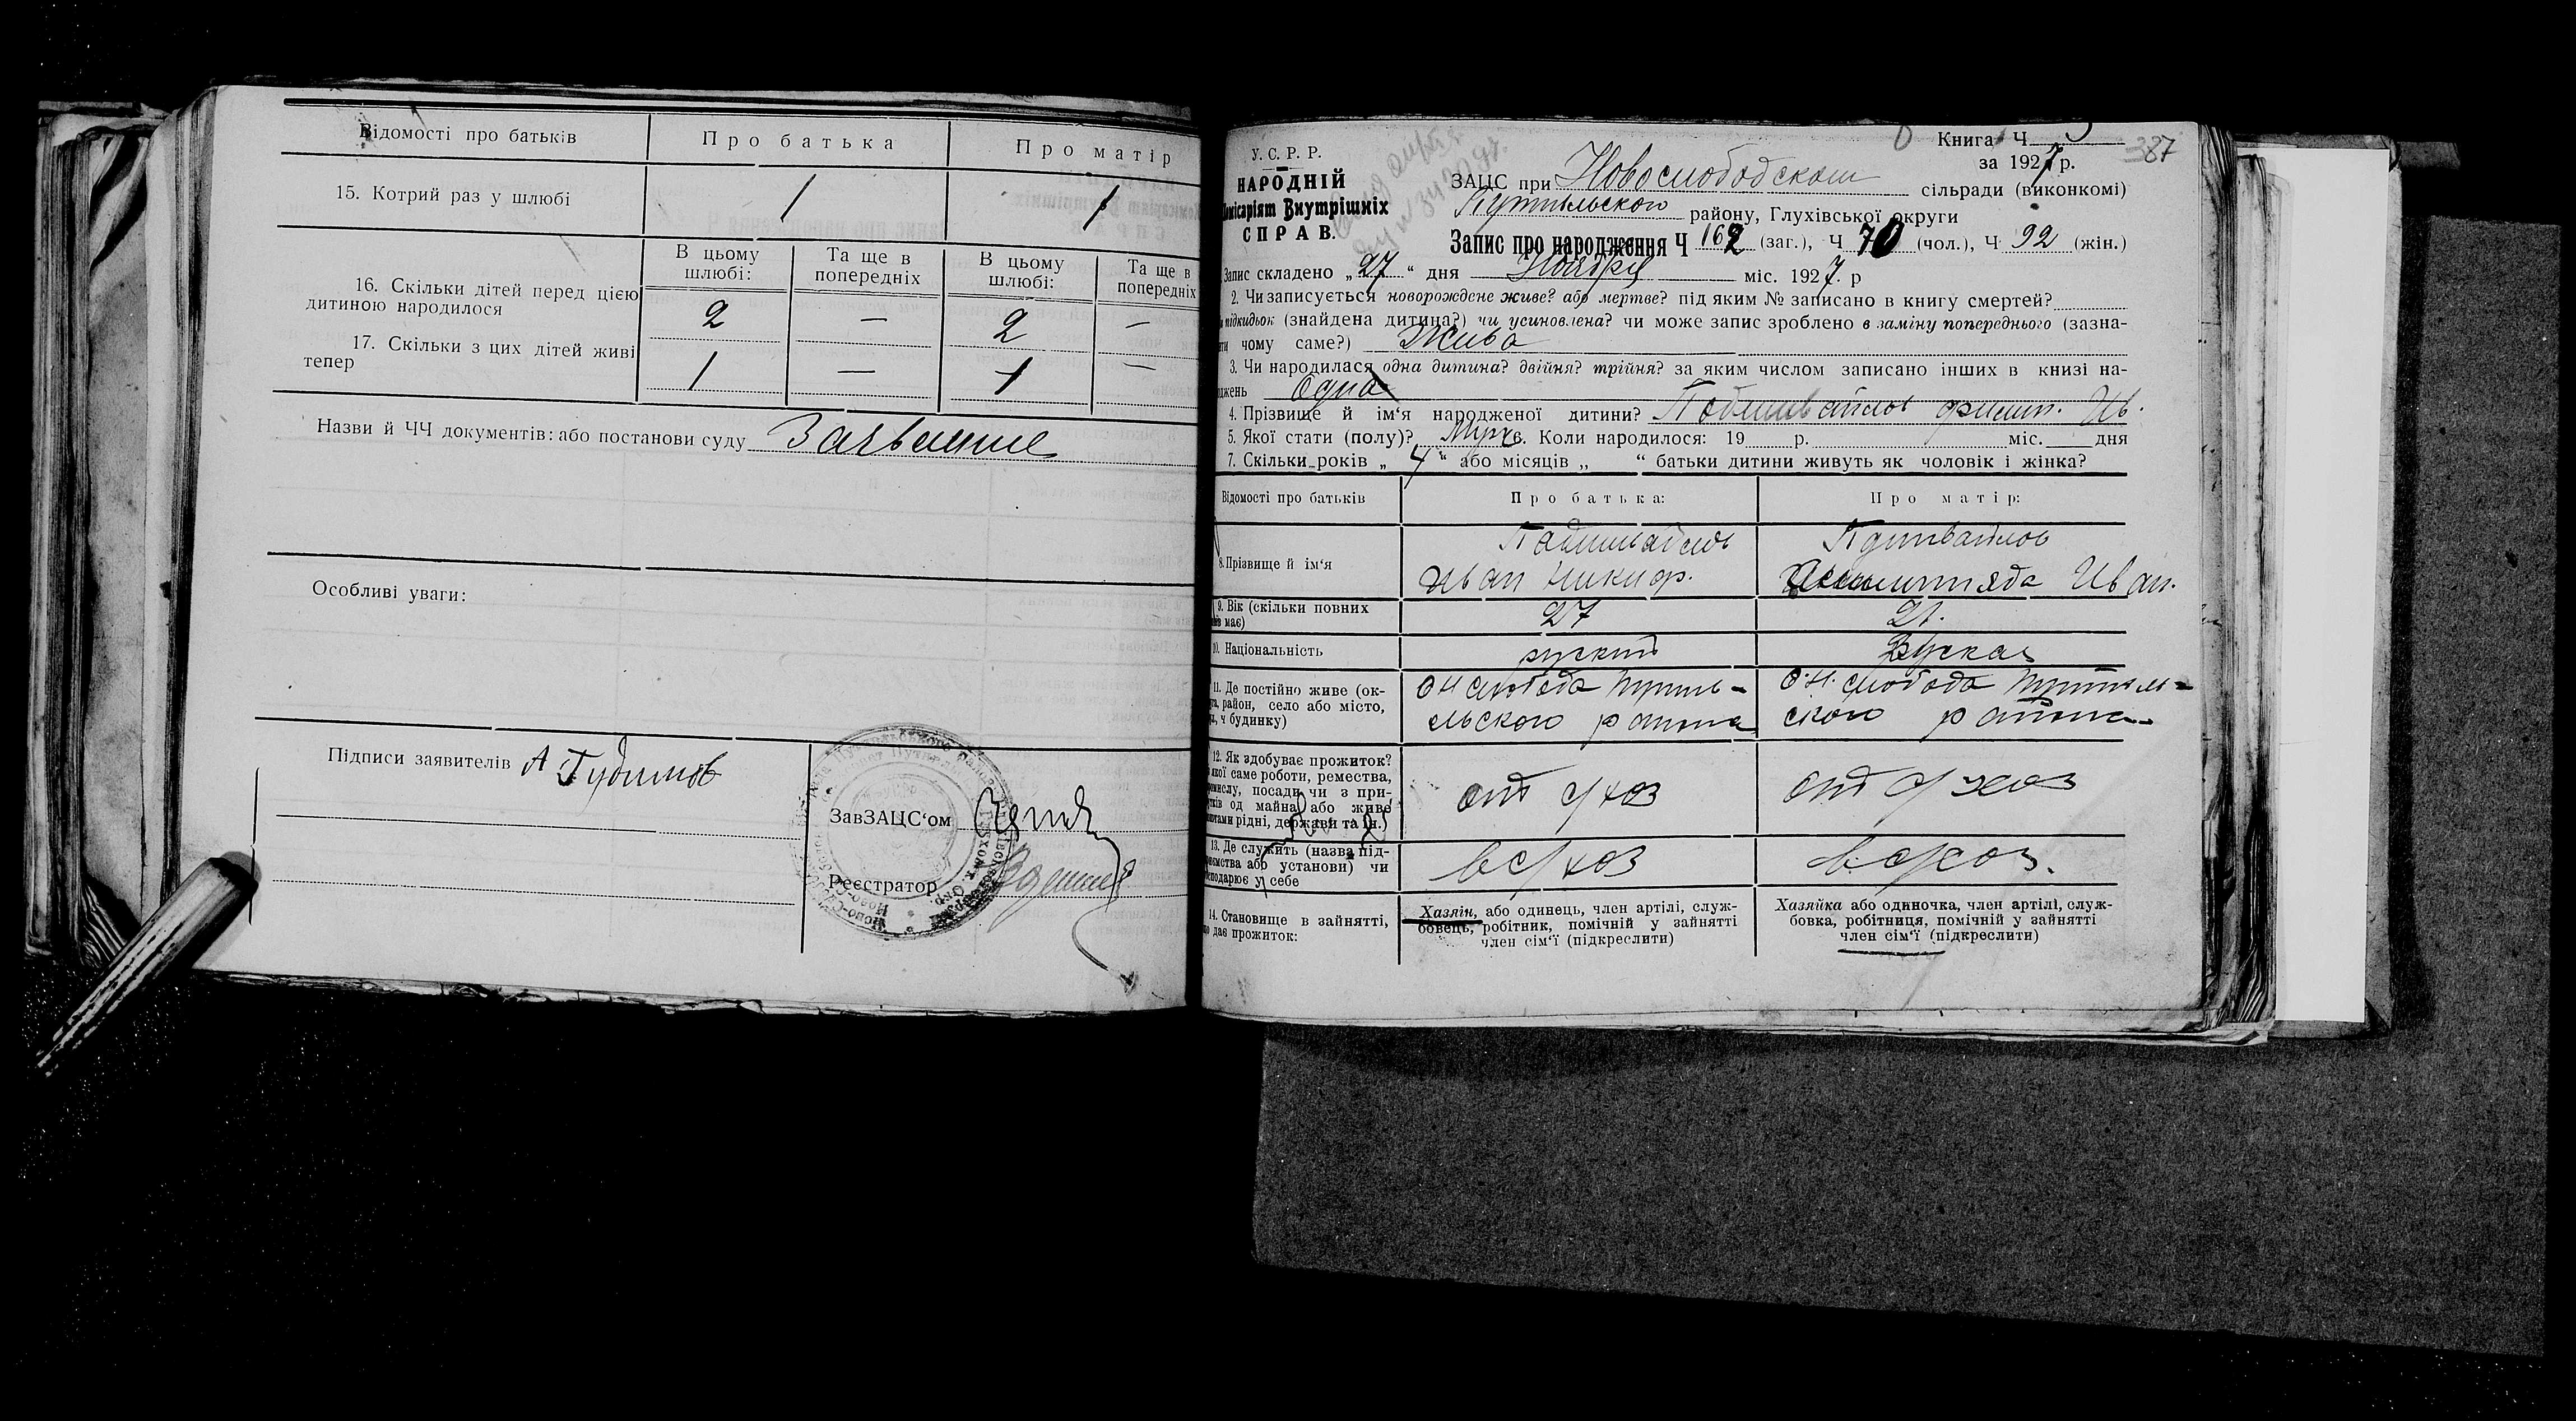 Відомості про батьків
Про батька
Про матір
15. Котрий раз у шлюбі
1
1
В цьому шлюбі:
Та ще в попередніх
В цьому шлюбі:
Та ще в попередніх
16. Скільки дітей перед цією
дитиною народилося
2 — 2 —
17. Скільки з цих дітей живі
тепер
1 — 1 —
Назви й ЧЧ документів: або постанови суду
Особливі уваги:
Підписи заявителів А Гудимов
ЗавЗАЦС‘ом
Реєстратор
У. С. Р. Р.
НАРОДНІЙ
Комісаріят Внутрішніх
СПРАВ.
Книга Ч
387
за 1927 р.
ЗАЦС при Новослободском сільради (виконкомі)
Путивльского району, Глухівської округи
Запис про народження Ч 162 (заг.), Ч 70 (чол.), Ч 92 (жін.)
Запис складено „27“ дня Ноября міс. 1927. р
2. Чи записується новорождене живе? або мертве? під яким № записано в книгу смертей?
підкидьок (знайдена дитина?) чи усиновлена? чи може запис зроблено в заміну попереднього (зазна-
чому саме?) Жива
3. Чи народилася одна дитина? двійня? трійня? за яким числом записано інших в книзі на-
Одна
4. Прізвище й ім‘я народженої дитини? Ив.
5. Якої стати (полу)? Муж 6. Коли народилося: 19 р. міс. дня
7. Скільки років „4“ або місяців „ “ батьки дитини живуть як чоловік і жінка?
Відомості про батьків
Про батька:
Про матір:
8. Прізвище й ім‘я
Иван Никиф.
Иван.
9. Вік (скільки повних
має)
27
21.
10. Національність
руский
Руская
11. Де постійно живе (ок-
район, село або місто,
ч будинку)
слобода Путив-
льского района
слобода Путивль-
ского района
12. Як здобуває прожиток?
якої саме роботи, ремества,
посади чи з при-
од майна або живе
рідні, держави та ін.)
от с/хоз
от с/хоз
13. Де служить (назва під-
або установи) чи
у себе
в с/хоз
в с/хоз.
14. Становище в зайнятті,
дає прожиток:
Хазяїн, або одинець, член артілі, служ-
бовець, робітник, помічній у зайнятті
член сім‘ї (підкреслити)
Хазяйка або одиночка, член артілі, служ-
бовка, робітниця, помічній у зайнятті
член сім‘ї (підкреслити)